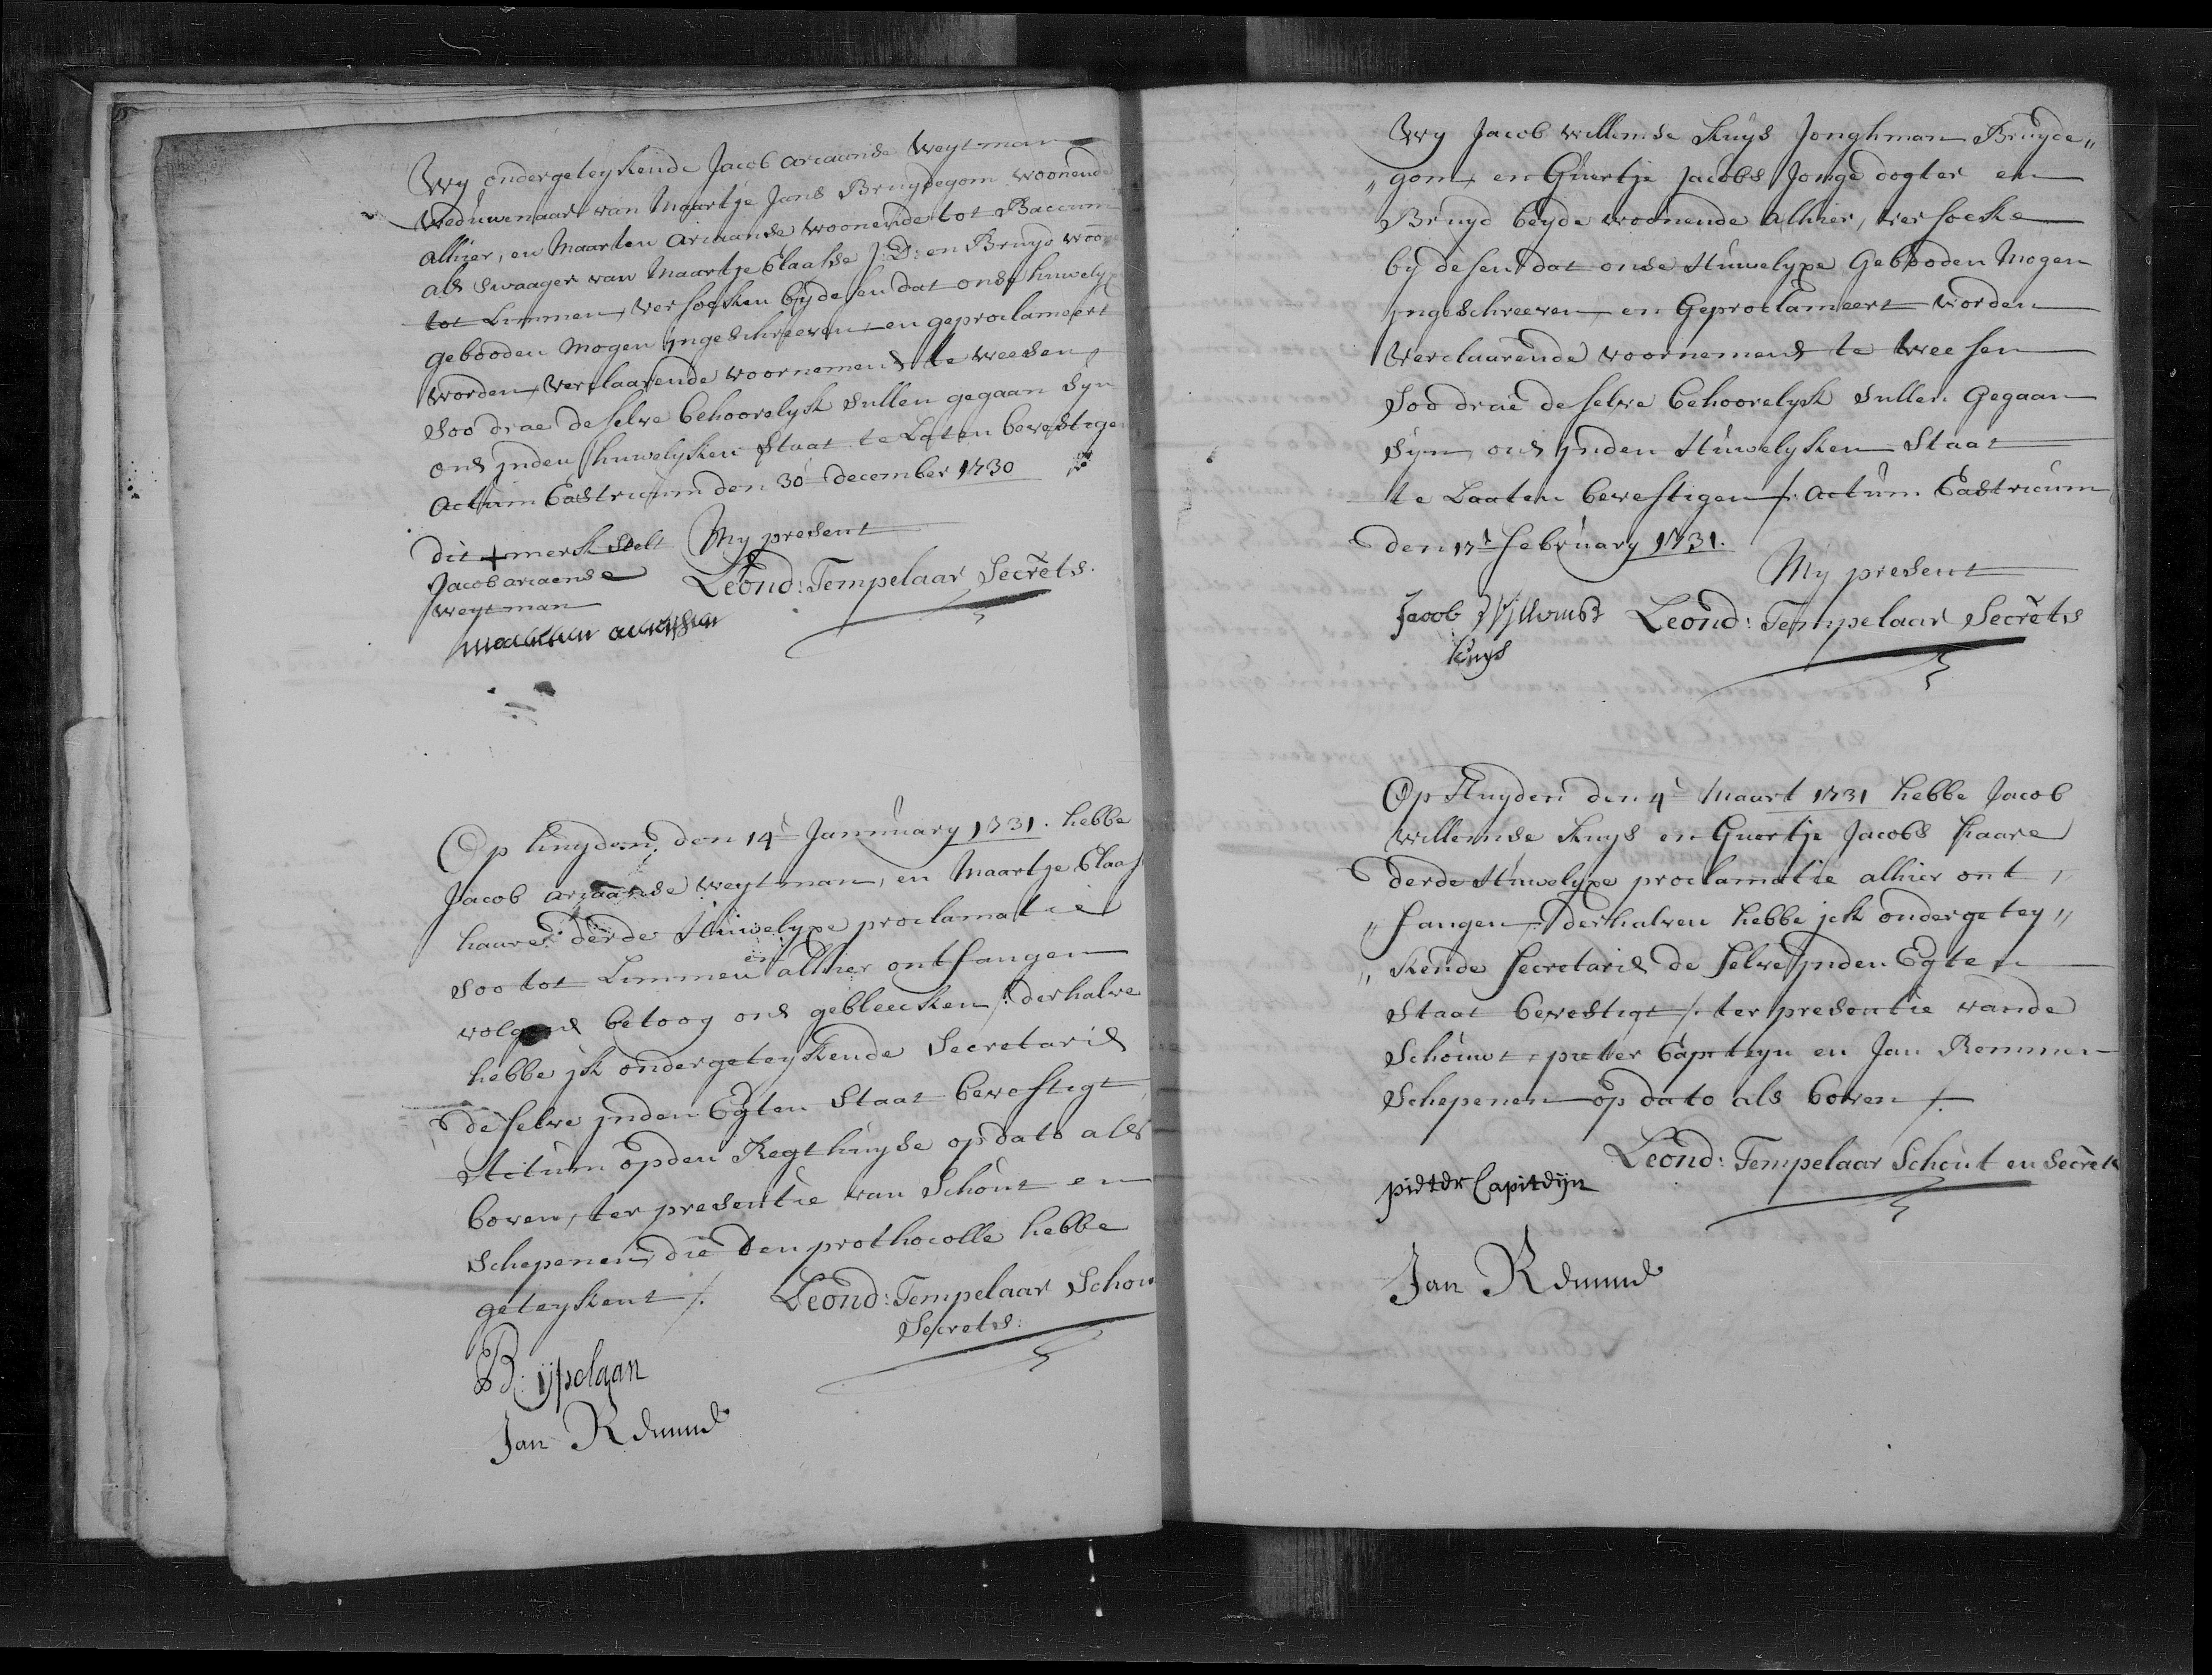 Wy ondergeteykende Jacob Ariaanse Weytman
Weduwenaar van Maartje Jans Bruydegom woonende
alhier, en Maarten Ariaanse woonende tot Baccum
als swaager van Maartje Claasse J: D: en Bruyd woon
tot Limmen, versoeken by desen dat onse huwelyxe
gebooden mogen ingeschreeven en geproclameert
worden, verclaarende voornemens te weesen,
soo drae deselve behoorelyk sullen gegaan syn
ons inden huwelyken staat te Laten bevestige
Actum Castricum den 30 december 1730
dit + merk stelt
Jacob ariaense
weytman
My present
Leond: Tempelaar Secrets.
maerten
Op huyden, den 14e January 1731. hebbe
Jacob Ariaanse Weytman, en Maartje Claas
haare derde Huwelyxe proclamatie
soo tot Limmen en alhier ontfangen
volgens betoog ons gebleecken /: derhalve
hebbe ik ondergeteykende Secretaris
deselve inden Egten Staat bevestigt
Actum op den Regthuyse op dato als
boven, ter presentie van Schout en
Schepenen, die den prothocolle hebbe
geteykent /.
Leond: Tempelaar Schou
Secrets:
B: ijpelaan
Jan
Wy Jacob Willemse Kuys Jonghman Bruyde„
„gom, en Guertje Jacobs Jonge dogter en
Bruyd beyde woonende alhier, versoeke
by desen dat onse Huwelyxe Gebooden Mogen
ingeschreeven en Geproclameert worden
verclaarende voornemens te weesen
Soo drae deselve behoorelyk sullen Gegaan
syn, ons inden Huwelyken Staat
te Laaten bevestigen /. Actum Castricum
den 17e february 1731.
My present
Jacob Willemse
Kuys
Leond: Tempelaar Secrets
Op Huyden den 4e Maart 1731 hebbe Jacob
Willemse Kuys en Guertje Jacobs haare
derde Huwelyxe proclamatie alhier ont„
„fangen /. derhalven hebbe ick ondergetey„
„kende Secretaris de selve inden Egten
Staat bevestigt /. ter presentie vande
Schout, pieter Capteyn en Jan Remmen
Schepenen op dato als boven /.
Leond: Tempelaar Schout en Secrets
pieter Capiteijn
Jan